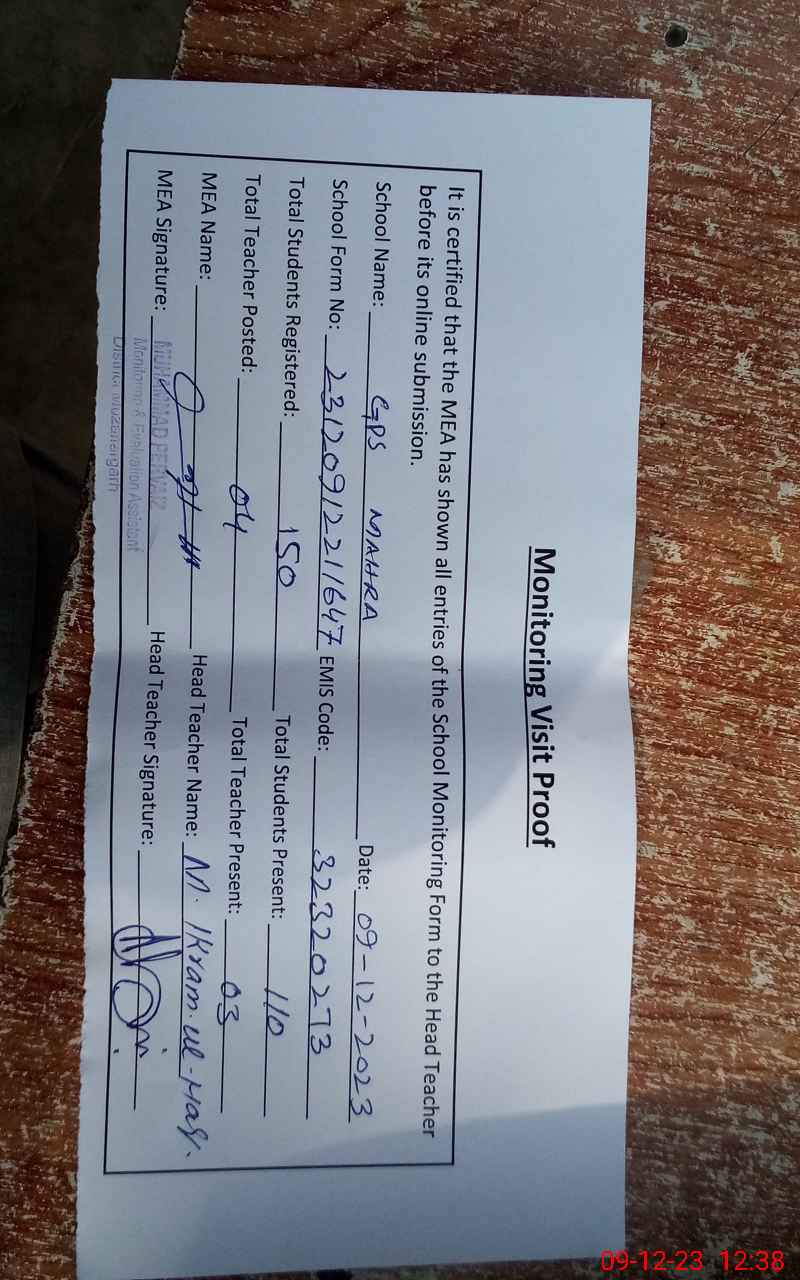 Monitoring Visit Proof
It is certified that the MEA has shown all entries of the School Monitoring Form to the Head Teacher
before its online submission.
School Name: GPS MAHRA Date: 09-12-2023
School Form No: 231209122211647 EMIS Code: 32320273
Total Students Registered: 150 Total Students Present: 110
Total Teacher Posted: 04 Total Teacher Present: 03
MEA Name: Head Teacher Name: M. Ikram-ul-Haq.
MEA Signature: Head Teacher Signature:
MUHAMMAD PERVAIZ
Monitoring & Evaluation Assistant
District Muzaffargarh
09-12-23 12:38